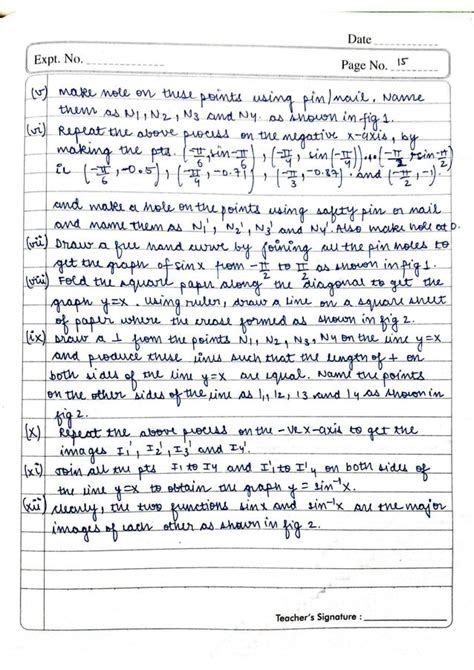 Date
Expt. No.
Page No. 15
(v) make hole on these points using pin/nail. Name
them as N1, N2, N3 and N4. as shown in fig 1.
(vi) Repeat the above process on the negative x-axis, by
making the pts. (-π/6, sin-π/6), (-π/4, sin(-π/4))...(-π/2, sin-π/2)
ie (-π/6, -0.5), (-π/4, -0.71), (-π/3, -0.87). and (-π/2, -1).
and make a hole on the points using safty pin or nail
and name them as N1', N2', N3' and N4'. Also make hole at 0.
(vii) Draw a free hand curve by joining all the pin holes to
get the graph of sinx from -π/2 to π/2 as shown in fig 1.
(viii) Fold the square paper along the diagonal to get the
graph y=x. Using ruler, draw a line on a square sheet
of paper where the crease formed as shown in fig 2.
(ix) Draw a ⊥ from the points N1, N2, N3, N4 on the line y=x
and produce these lines such that the length of + on
both sides of the line y=x are equal. Name the points
on the other sides of the line as I1, I2, I3 and I4 as shown in
fig 2.
(x) Repeat the above process on the -ve x-axis to get the
images I1', I2', I3' and I4'.
(xi) Join all the pts I1 to I4 and I'1 to I'4 on both sides of
the line y=x to obtain the graph y = sin⁻¹x.
(xii) clearly, the two functions sinx and sin⁻¹x are the major
images of each other as shown in fig 2.
Teacher's Signature :